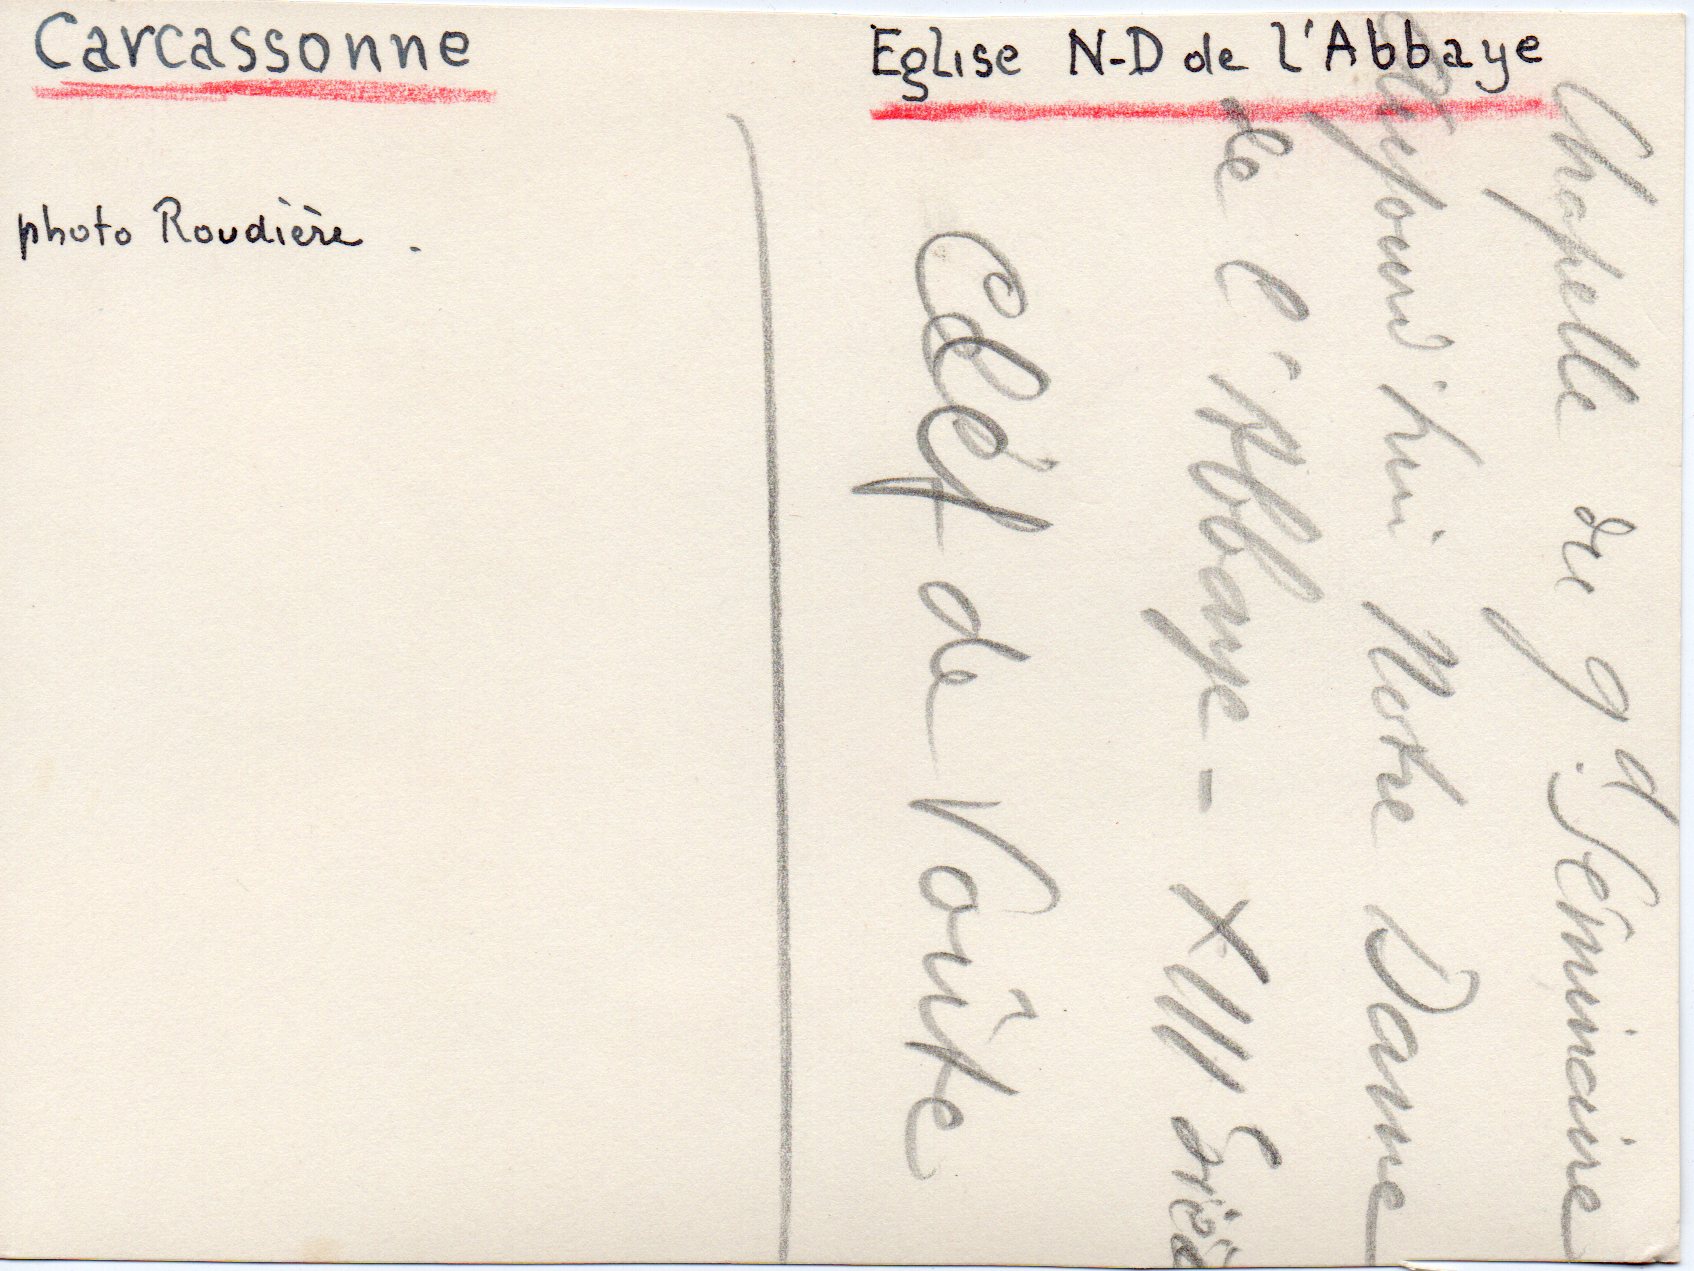 Carcassonne
Eglise N-D de l'Abbaye
photo Roudière.
Chapelle du gd Séminaire
Aujourd'hui Notre Dame
de l'Abbaye - XIII
Cléf de Voûte